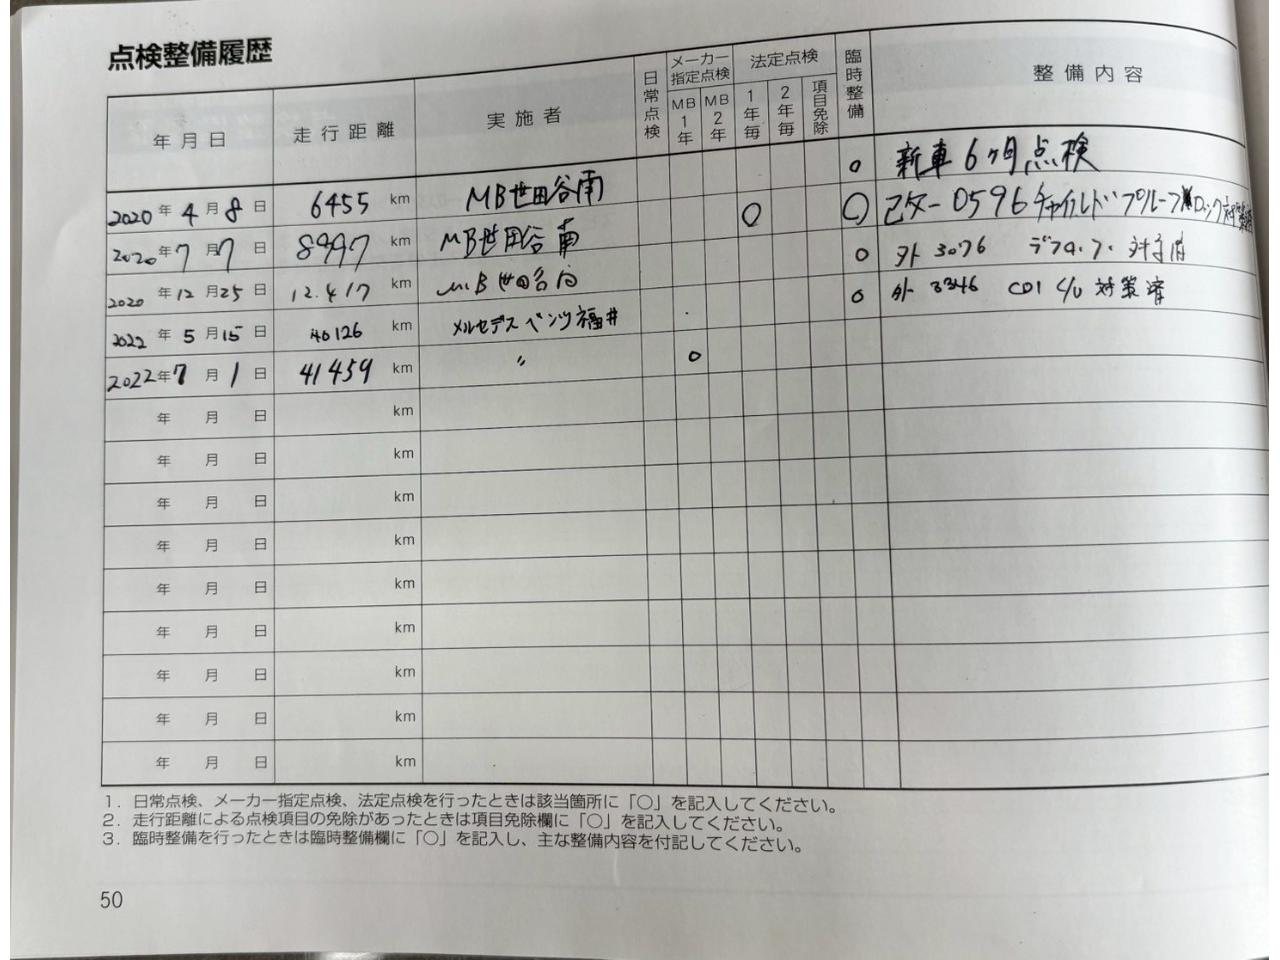 点検整備履歴
年月日 走行距離 実施者 日常点検 メーカー指定点検 MB1年 MB2年 法定点検 1年毎 2年毎 項目免除 臨時整備 整備内容
2020年4月8日 6455 km MB世田谷南 ○ 新車6ヶ月点検
2020年7月7日 8997 km MB世田谷南 ○ ○ 改ター0596チャイルドプルーフロック対策済
2020年12月25日 12.417 km MB世田谷南 ○ 外3076
2022年5月15日 40126 km メルセデスベンツ福井 ○ 外3346 CDI C/U 対策済
2022年7月1日 41459 km 〃 ○
年 月 日 km
年 月 日 km
年 月 日 km
年 月 日 km
年 月 日 km
年 月 日 km
年 月 日 km
年 月 日 km
年 月 日 km
1. 日常点検、メーカー指定点検、法定点検を行ったときは該当箇所に「○」を記入してください。
2. 走行距離による点検項目の免除があったときは項目免除欄に「○」を記入してください。
3. 臨時整備を行ったときは臨時整備欄に「○」を記入し、主な整備内容を付記してください。
50